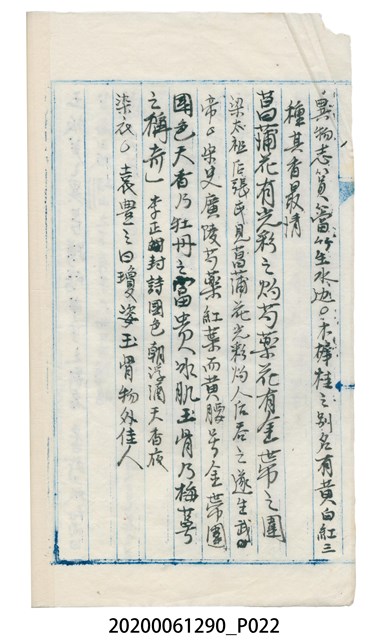 異物志篔簹竹生水边。木樨桂之别名有黄白紅三
種其香最清
菖蒲花有光彩之灼芍藥花有金帶之圍
梁太祖后張氏見菖蒲花光彩灼人后吞之遂生武
帝。宋史廣陵芍藥紅葉而黄腰号金帶圍
國色天香乃牡丹之富貴冰肌玉骨乃梅萼
之稱奇 李正封詩國色朝酣酒天香夜
染衣。袁豊之曰瓊姿玉骨物外佳人
20200061290_P022